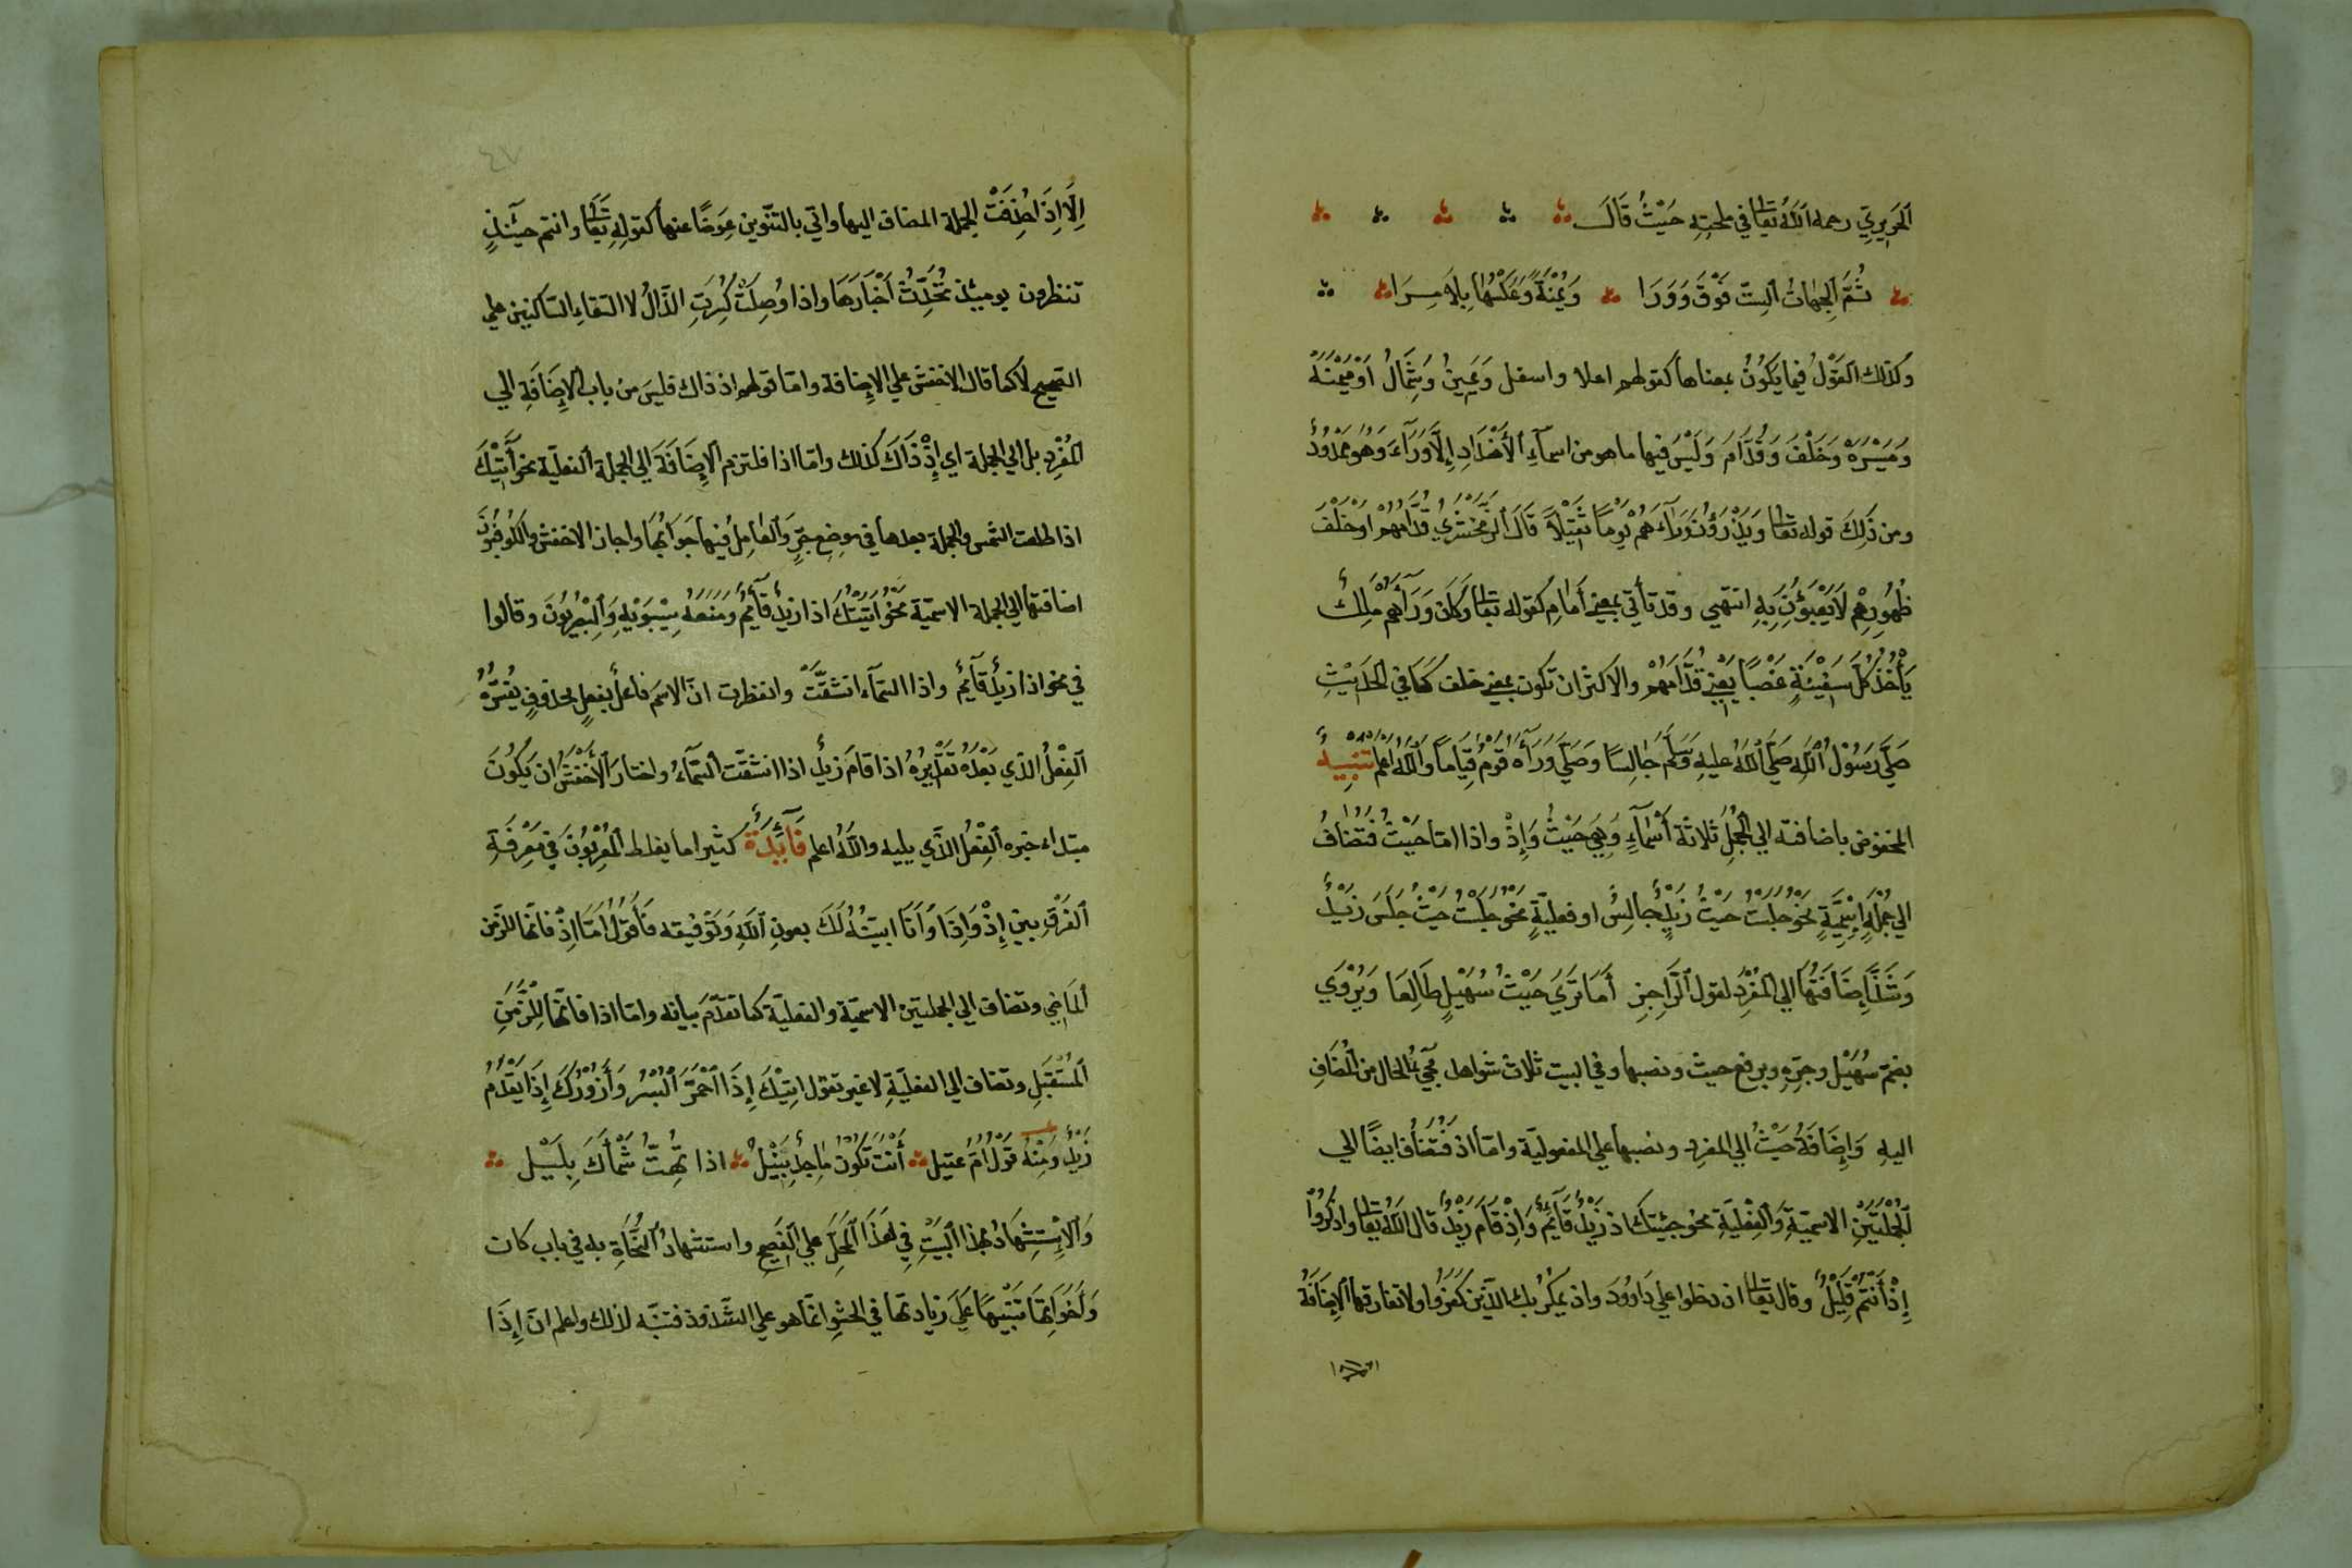 الحَرِيرِيّ رحمه اللّٰهُ تعَالى في ملحتِهِ حَيْثُ قَالَ
ثُمَّ الِجهَاتُ السِتّ فَوْقَ وَوَرَا وَيُمْنَةً وَعَكْسُهَا بِلَا مِرَا
وكذلك القَوْلُ فيما يكُونُ بمعناها كقولهم اعلا واسفل وَيَمِينُ وَشِمَالُ اوْ مَيْمَنَة
وَمَيْسَرَة وَخَلْفَ وَقُدَّامَ وَلَيْسَ فيها ما هو من اسمآءِ الأَضْدَادِ اِلَّا وَرَآءَ وَهُوَ مَمْدُودُ
ومن ذَلِكَ قوله تعَالى وَيَذَرُونَ وَرَآءَ هُمْ يَوْمًا ثَقِيْلًا قَالَ الزَّمَخْشَرِيُ قُدَّامَهُمْ اَوْ خَلْفَ
ظُهُورِهِمْ لَا يَعْبَؤُنَ بِهِ انتهي وقد تأتي بمعنى أَمَامِ كقوله تعَالى وَكَانَ وَرَآءَهُمْ مَلِكُ
يَأْخُذُ كُلَّ سَفِيْنَةٍ غَصْبًا يَعْنِي قُدَّامَهُمْ والاكثر ان تكون بمعنى خلف كَمَا في الحَدَيْثِ
صَلَّى رَسُوْلُ اللّٰهِ صَلَّى اللّٰهُ عليهِ وَسَلَّمَ جَالِسًا وَصَلَّى وَرَآءَهُ قَوْمُ قِيَامًا وَاللّٰهُ اَعْلَم تنبِيهُ
المخفوض باضافته الي الجُمَلِ ثلاثة أَسْمَآءِ وَهِيَ حَيْثُ وَاِذْ واذا امّا حَيْثُ فَتُضَافُ
الي جُمْلَةٍ اِسْمِيَّةٍ نحوَ جَلَسْتُ حَيْثُ زَيْدُ جَالِسُ او فعليّةٍ نحوَ جَلَسْتُ حَيْثُ جَلَسَ زَيْدُ
وَشَذَّ اِضَافَتُهَا الي المُفْرَدِ لقول الرَّاجِزِ أَمَا تَرَيَ حَيْثُ سُهَيْلٍ طَالِعَا وَيُرْوَي
بضمّ سُهَيْل وجرّهِ وبرفع حيث ونصبها وفي البيت ثلاث شواهد مَجِيئُ الحال من المُضَافِ
اليهِ وَاِضَافَةُ حَيْثُ الي المفرد ونصبها علي المفعوليّة وامّا اذ فَتُضَافُ ايضًا الي
الجُمْلَتَيْنِ الاسميّةِ وَالفِعْلِيّةِ نحو جيئتك اذ زَيْدُ قَآئِمُ وَاِذْ قَامَ زَيْدُ قال اللّٰهُ تعَالى واذكروا
اِذْ أَنْتُمْ قَلِيْلُ وقال تعَالى اذ دخلوا علي دَاوُودَ واذ يمكُرُ بك الّذين كَفَرُوا ولا تفارقها الاِضَافَةُ
٤٧
اِلَّا اِذَا حُذِفَتْ الجملة المضاف اليها واتي بالتنّوين عِوَضًا عنها كقولِهِ تعَالى وانتم حينَئِذٍ
تنظرون يوميئذ تُحَدِّثُ أَخْبَارَهَا واذا وُصِلَتْ كُسِرَتِ الذّالُ لالتقاءِ السّاكنينِ علي
الصّحيح لا كما قال الاخفش علي الاِضافة وامّا قولهم اذ ذاك فليسَ مِنْ باب الاِضَافَةِ الي
المُفْرَدِ بل الي الجملة اي اِذْ ذَاكَ كذلك وامّا اذا فلتزم الاِضَافَةَ الي الجملة الفعليّة نحو آتِيْكَ
اذا طلعت الشّمس والجملة بعدها في موضِع جَرٍّ وَالعَامِلُ فيها جَوَابُهَا واجاز الاخفش والكُوفِيُونَ
اضافتها الي الجملة الاسميّة نحوَ اَتَيْتُكَ اذا زيدُ قَآئِمُ وَمَنَعَهُ سِيْبَوَيْهِ وَالبِصْرِيُونَ وقالوا
في نحو اذا زيدُ قآئِمُ واذا السّمآء انشَقَّتْ وانفطرت انّ الاسمَ فاعلُ بفِعلٍ محذوفٍ يُفَسِّرُهُ
الفِعْلُ الذّي بَعْدَهُ تقْدِيرُهُ اذا قامَ زيدُ اذا انشقّت السّمآءُ واختارَ الأَخْفَشُ ان يَكُونَ
مبتداء خبره الفِعْلُ الذّي يليه واللّٰهُ اعلم فَآئِدَةُ كثيرا ما يغلط المُعْرِبُونَ في مَعْرِفَةِ
الفَرْقِ بين اِذْ وَاِذَا وَأَنَا ابيّنُهُ لَكَ بعون اللّٰهِ وَتَوْفيقه فَأَقُولُ امَّا اِذْ فانّها للزّمن
المَاضي وتضاف الي الجملتين الاسميّة والفعليّة كما تقدّم بيانه وامّا اذا فانّها لِلزَّمَنِ
المُسْتَقْبَلِ وتضاف الي الفعليّةِ لا غير تقول اتِيْكَ اِذَا احْمَرَّ البُسْرُ وَأَزُوْرُكَ اِذَا يَقْدَمُ
زيْدُ وَمِنْهُ قَوْلُ امّ عقيل أَنْتَ تَكُوْنُ مَاجِدُ نَبِيْلُ اذا تَهُبُّ شَمْأَلَ بِلَيْلِ
وَالاِسْتِشِهَادُ بهذا البَيْتِ فِي هَذَا المَحَلِّ علي الفَصِيحِ واستشهادُ النُّحَاةِ به في باب كان
وَأَخَوَاتِهَا تَنْبِيْهًا عَلَي زيادتها في الحشوِ انّما هو علي الشّذوذ فتنبّه لذلك واعلم انّ اِذَا